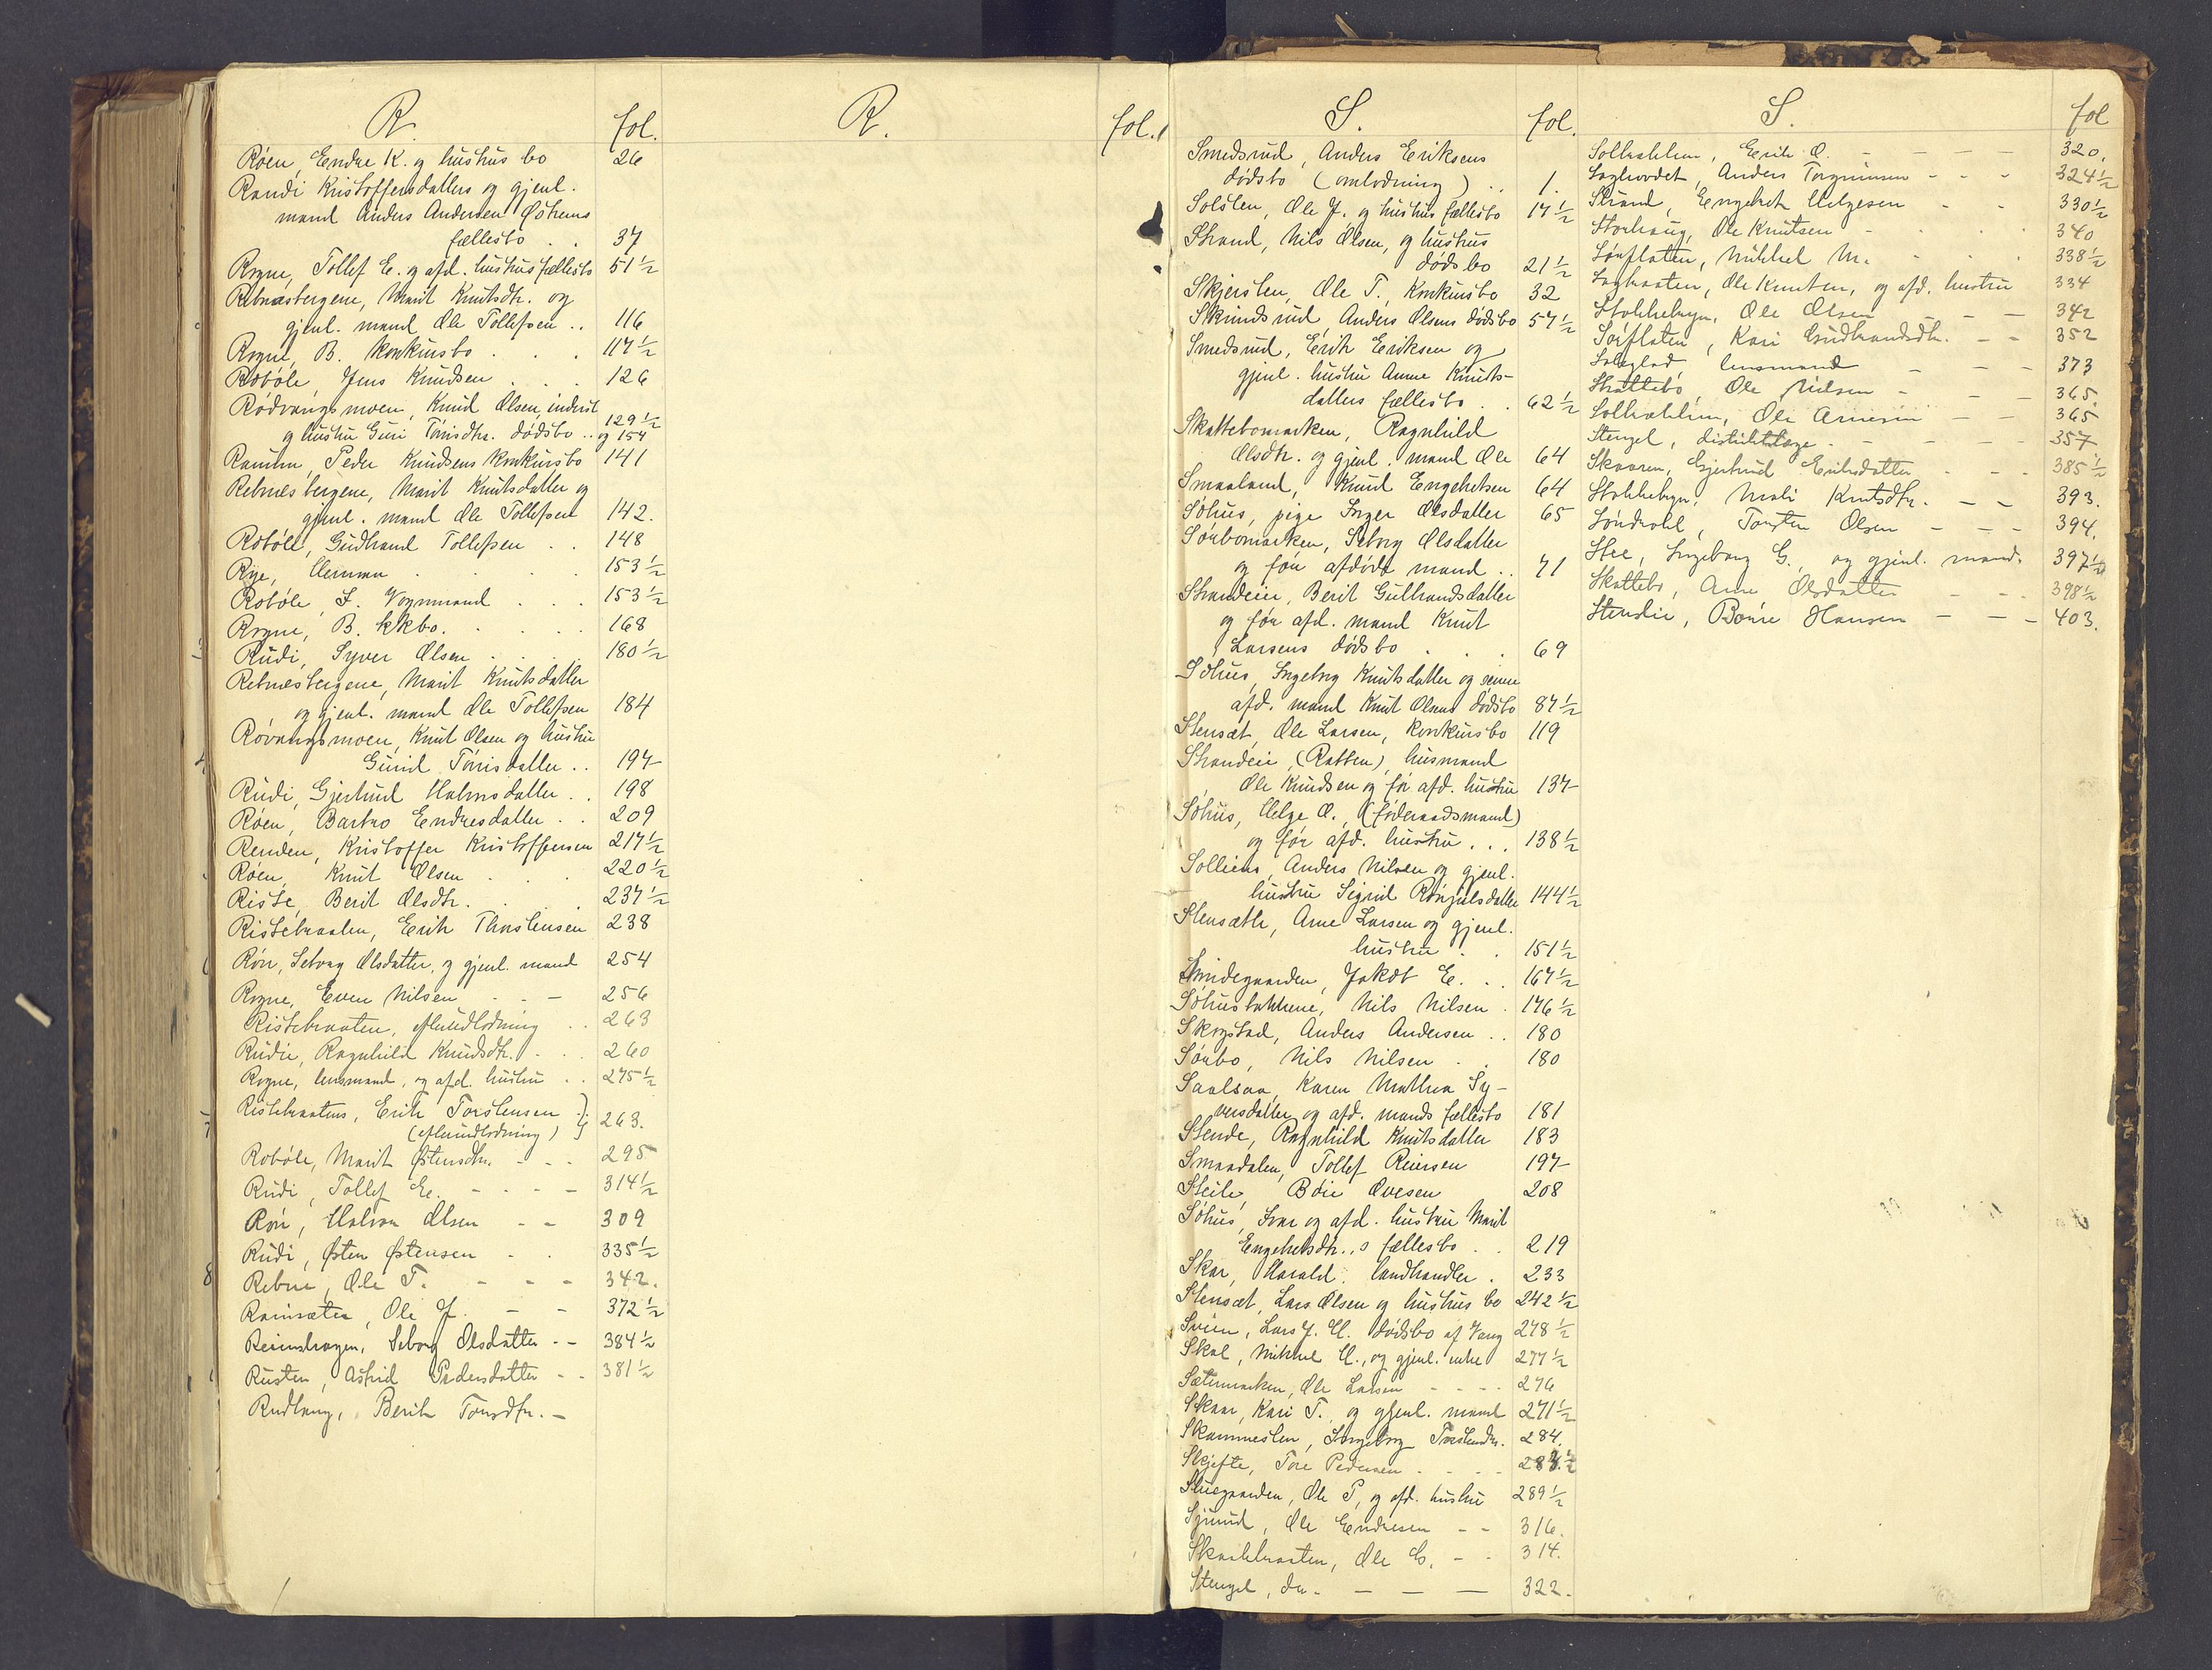 R. fol.
Røen, Endre K. og hustrus bo 26
Randi Kristoffersdatters og gjenl.
mand Anders Andersen Østrems
fællesbo . . 37
Rogne, Tollef E. og afd. hustrus fællesbo 51½
Rebnesbergene, Marit Knutsdtr. og
gjenl. mand Ole Tollefsen .. 116
Rogne, B. konkursbo . . . 117½
Robøle, Jens Knudsen . . . 126
Rødvangsmoen, Knud Olsen, inderst 129½
og hustru Guri Tørrisdtr. dødsbo .. og 154
Ramum, Peder Knudsens konkursbo 141
Rebnesbergene, Marit Knutsdatter og
gjenl. mand Ole Tollefsen 142.
Robøle, Gudbrand Tollefsen . . 148
Rye, Herman . . . . 153½
Robøle, J. Vognmand . . . 153½
Rogne, B. kkbo. . . . . 168
Rudi, Syver Olsen . . . . 180½
Rebnesbergene, Marit Knutsdatter
og gjenl. mand Ole Tollefsen 184
Røvangsmoen, Knut Olsen og hustru
Gunild Tørrisdatter .. 197
Rudi, Gjertrud Halvorsdatter . . 198
Røen, Barbro Endresdatter . . 209
Renden, Kristoffer Kristoffersen 217½
Røen, Knut Olsen . . . 220½
Riste, Berit Olsdtr. . . . 237½
Ristebraaten, Erik Thorstensen 238
Røn, Seborg Olsdatter, og gjenl. mand 254
Rogne, Even Nilsen . . – 256
Ristebraaten, efterudlodning . . 263
Rudie, Ragnhild Knudsdtr. . . . 260
Rogne, lensmand, og afd. hustru . . 275½
Ristebraatens, Erik Torstensen
(efterudlodning) 263.
Robøle, Marit Østensdtr. - - - 295
Rudi, Tollef E. - - - - 314½
Røn, Halvor Olsen - - 309
Rudi, Østen Østensen - . 335½
Rebne, Ole T. - - - 342.
Ramsæter, Ole J. - - 372½
Reienshagen, Seborg Olsdatter -- 384½
Rusten, Astrid Pedersdatter - - 381½
Rudtang, Berit Torsdtr. –
R. fol.
S. fol.
Smedsrud, Anders Eriksens
dødsbo (omlodning) .. 1.
Solsten, Ole J. og hustrus fællesbo 17½
Strand, Nils Olsen, og hustrus
dødsbo 21½
Skjersten, Ole T. konkursbo 32
Skrindsrud, Anders Olsens dødsbo 57½
Smedsrud, Erik Eriksen og
gjenl. hustru Anne Knuts-
datters fællesbo . . 62½
Skattebomarken, Ragnhild
Olsdtr. og gjenl. mand Ole 64
Smaaland, Knud Engebretsen 64
Søhus, pige Inger Olsdatter 65
Sørbomarken, Seborg Olsdatter
og før afdøde mand .. 71
Strandeie, Berit Gulbrandsdatter
og før afd. mand Knut
Larsens dødsbo . . . 69
Søhus, Ingeborg Knutsdatter og senere
afd. mand Knut Olsens dødsbo 87½
Stensæt, Ole Larsen, konkursbo 119
Strandeie, (Robben), husmand
Ole Knudsen og før afd. hustru 137
Søhus, Helge O., (føderaadsmand)
og før afd. hustru . . . 138½
Solliens, Anders Nilsen og gjenl.
hustru Sigrid Rønjulsdatter 144½
Stensæth, Arne Larsen og gjenl.
hustru . . 151½
Smidegaarden, Jakob E. . . 167½
Søhusbakkene, Nils Nilsen . 176½
Skogstad, Anders Andersen . . 180
Sørbo, Nils Nilsen . . 180
Saalsaa, Karen Mathea Sy-
versdatter og afd. mands fællesbo 181
Stende, Ragnhild Knutsdatter 183
Smaadalen, Tollef Reiersen 197
Steile, Bøie Ovesen 208
Søhus, Ivar og afd. hustru Marit
Engebretsdtr.,s fællesbo . . 219
Skar, Harald. landhandler . 233
Stensæt, Lars Olsen og hustrus bo 242½
Svien, Lars J. H. dødsbo af Vang 278½
Skal, Mikkel H., og gjenl. enke 277½
Sætermarken, Ole Larsen - - - - 276
Skaar, Kari T. og gjenl. mand 271½
Skammesten, Ingeborg Torstensdtr. 284.
Skjefte, Tore Pedersen . - - -
Stuegaarden, Ole P, og afd. hustru 289½
Ole Endresen -- 316.
Ole E. - - 314.
Stengel, do. – – – 322.
S. fol
Erik O. - – – – 320.
Anders Torgrimsen - - - 324½
Strand, Engebret Helgesen - - 330½
Storhaug, Ole Knutsen - . . . 340
Sørflaten, Mikkel M. - . . 338½
Ole Knutsen, og afd. hustru 334
Stokkebryn, Ole Olsen – – 342
Sørflaten, Kari Gudbrandsdtr. - - 352
lensmand - - - 373
Skattebø, Ole Nielsen - - – 365.
Ole Arnesen – – 365
Stengel, distriktslæge - - - - - 357
Skaaren, Gjertrud Eriksdatter - - - 385½
Stokkebryn, Mali Knutsdtr. - – – 393.
Søndrol, Torsten Olsen – - - 394.
Stee, Ingeborg G., og gjenl. mand. 397½
Skattebo, Arne Olsdatter - - - 398½
Stenslie, Børre Hansen – – – 403.